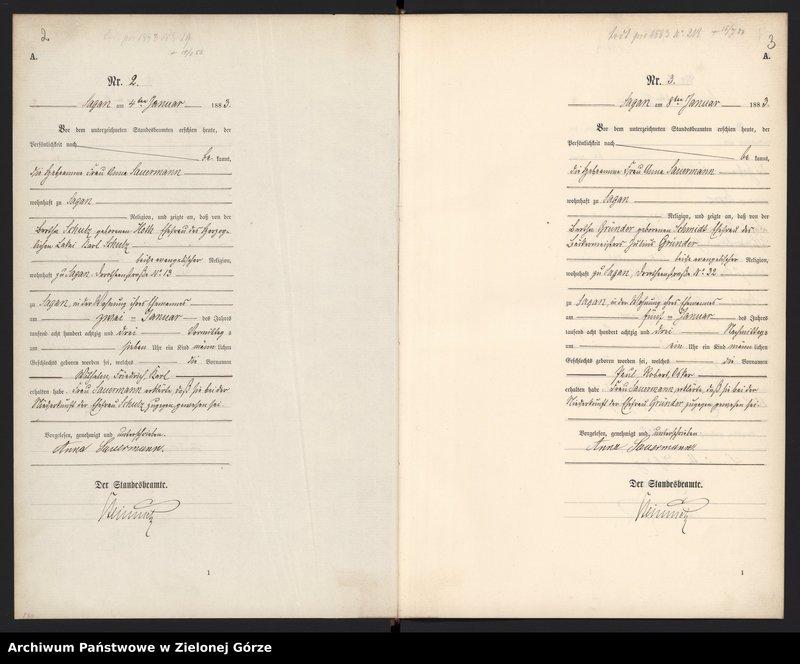 2
A.
Nr. 2.
Sagan am 4ten Januar 1883.
Vor dem unterzeichneten Standesbeamten erschien heute, der
Persönlichkeit nach
be kannt,
die Hebeamme Frau Anna Sauermann
wohnhaft zu Sagan
Religion, und zeigte an, daß von der
Bertha Schulz geborenen Ehefrau des Herzog-
lichen Lakai Karl Schulz
beide evangelischer Religion,
wohnhaft zu Sagan, Dorotheenstraße No. 13
zu Sagan, in der Wohnung ihres Ehemannes
am zwei = Januar des Jahres
tausend acht hundert achtzig und drei Vormittag s
um sieben Uhr ein Kind männ lichen
Geschlechts geboren worden sei, welches die Vornamen
Wilhelm, Friedrich, Karl
erhalten habe. Frau Sauermann erklärte, daß sie bei der
Niederkunft der Ehefrau Schulz zugegen gewesen sei.
Vorgelesen, genehmigt und unterschrieben.
Anna Sauermann.
Der Standesbeamte.
1
3
A.
Nr. 3.
Sagan am 8ten Januar 1883.
Vor dem unterzeichneten Standesbeamten erschien heute, der
Persönlichkeit nach
be kannt,
die Hebeamme Frau Anna Sauermann
wohnhaft zu Sagan
Religion, und zeigte an, daß von der
Bertha Gründer geborenen Schmidt Ehefrau des
Bäckermeisters Julius Gründer
beide evangelischer Religion,
wohnhaft zu Sagan, Dorotheenstraße No. 32
zu Sagan, in der Wohnung ihres Ehemannes
am fünf = Januar des Jahres
tausend acht hundert achtzig und drei Nachmittag s
um ein Uhr ein Kind männ lichen
Geschlechts geboren worden sei, welches die Vornamen
Paul Robert Oskar
erhalten habe. Frau Sauermann erklärte, daß sie bei der
Niederkunft der Ehefrau Gründer zugegen gewesen sei.
Vorgelesen, genehmigt und unterschrieben.
Anna Sauermann.
Der Standesbeamte.
1
Archiwum Państwowe w Zielonej Górze